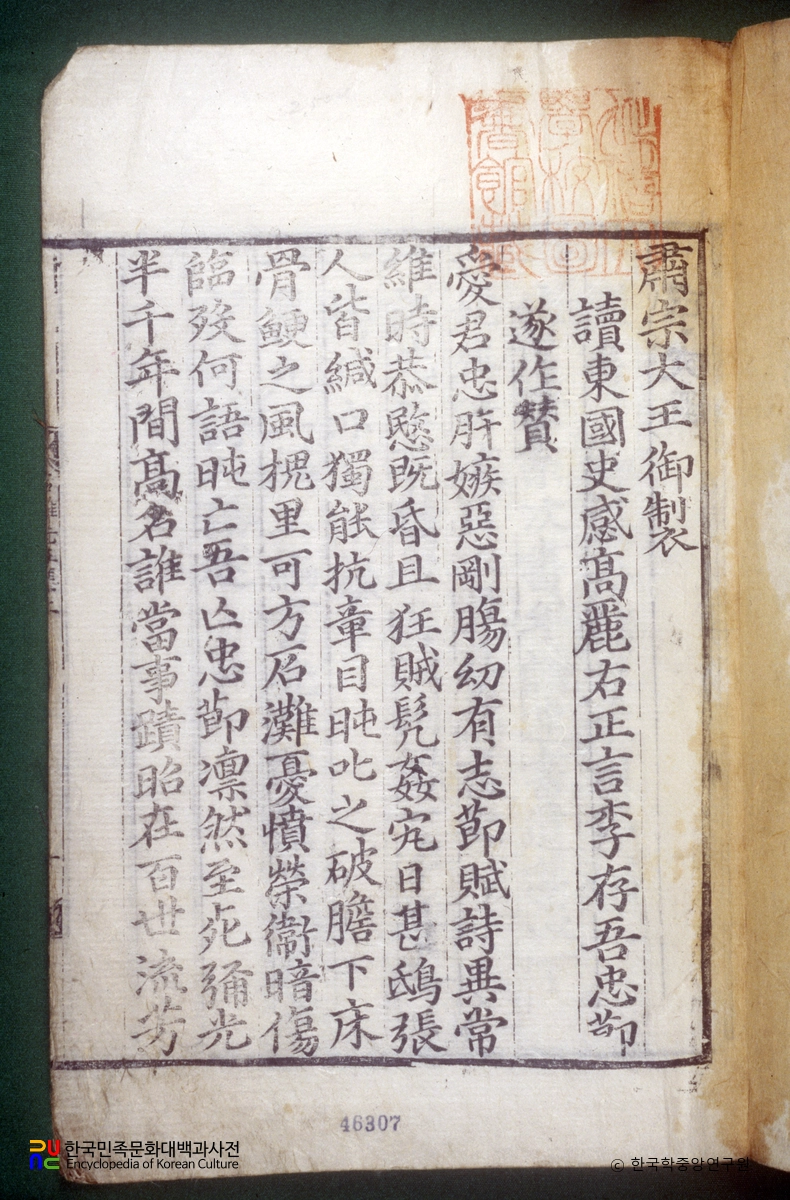 肅宗大王御製
讀東國史感高麗右正言李存吾忠節
遂作贊
愛君忠肝嫉惡剛膓幼有志節賦詩異常
維時恭愍既昏且狂賊髡姦宄日甚鴟張
人皆緘口獨能抗章目旽叱之破膽下床
骨鯁之風槐里可方石灘憂憤榮衛暗傷
臨歿何語旽亡吾亾忠節凛然至死彌光
半千年間高名誰當事蹟昭在百世流芳
學校圖
書館藏
46307
한국민족문화대백과사전
Encyclopedia of Korean Culture
© 한국학중앙연구원